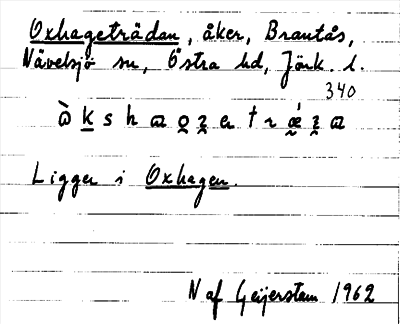 Oxhageträdan, åker, Brantås,
Nävelsjö sn, Östra hd, Jönk. l.
340
Ligger i Oxhagen.
N af Geijerstam 1962